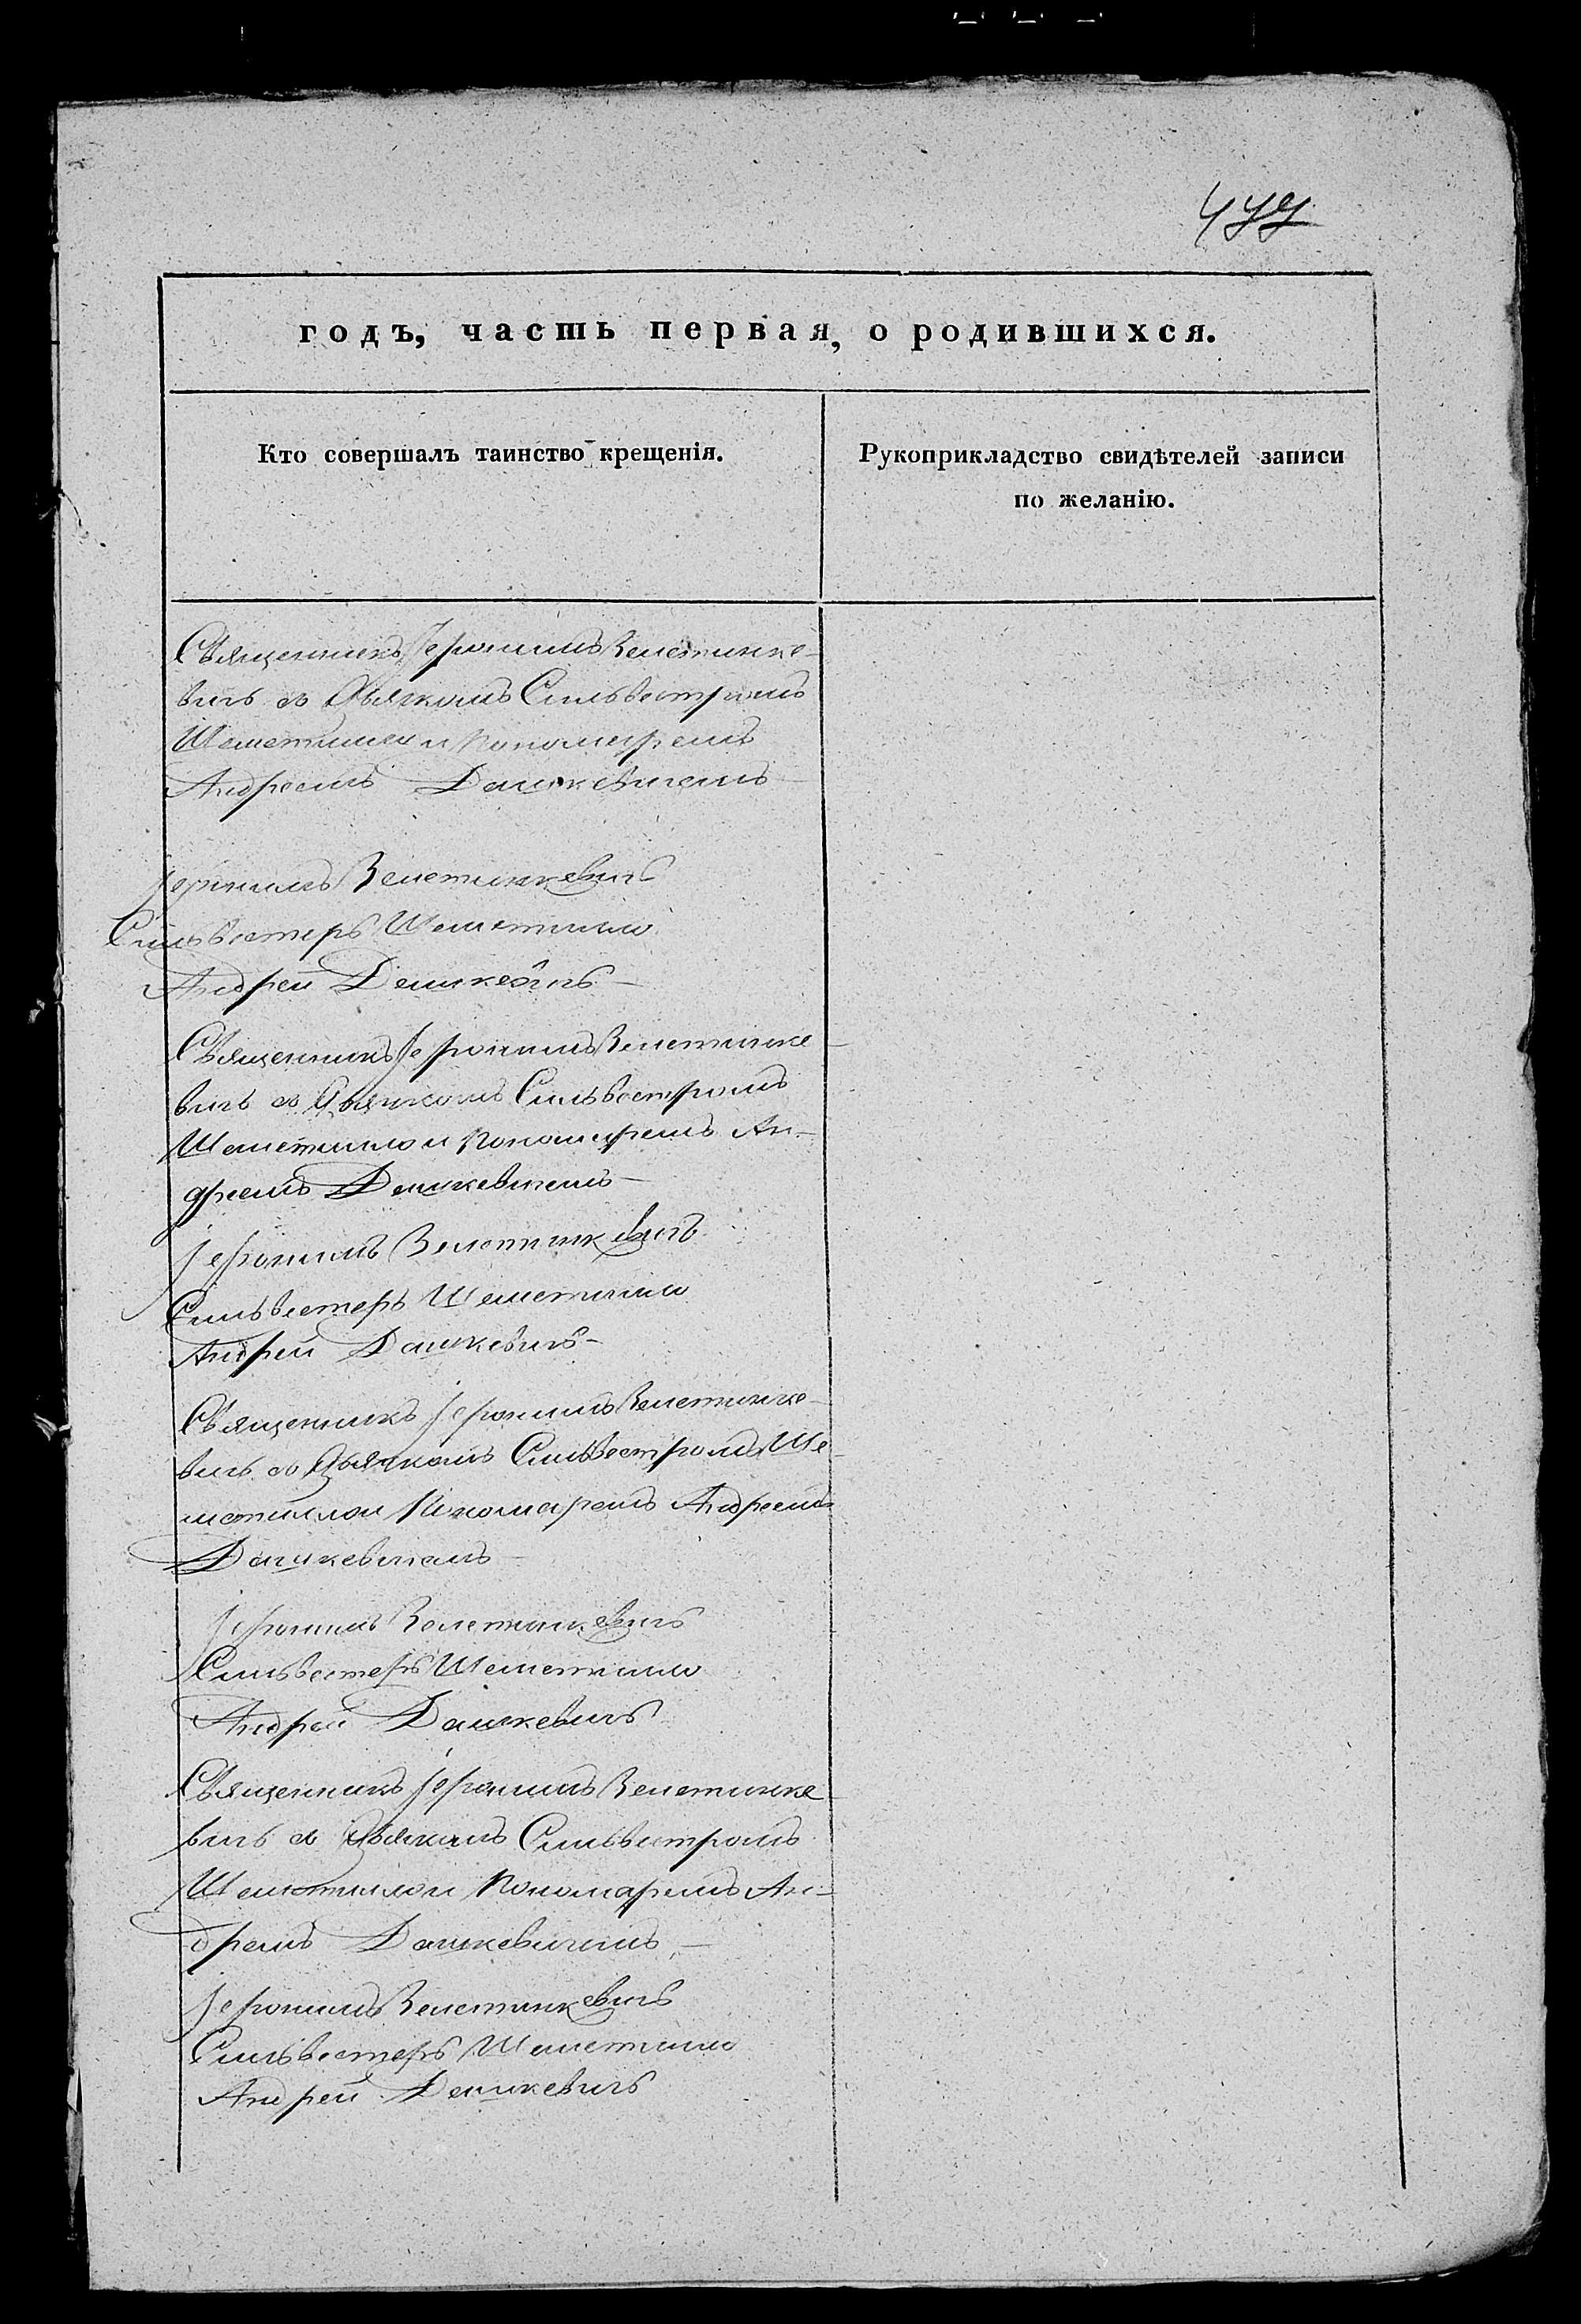 477
годъ, часть первая, о родившихся.
Кто совершалъ таинство крещенія.
Рукоприкладство свидѣтелей записи
по желанію.
Священникъ Іеронимъ Велетинке-
вичъ съ Дьячкомъ Сильвестромъ
Шеметилло и Пономаремъ
Андреемъ Дашкевичемъ
Іеронимъ Велетинкевичъ
Сильвестеръ Шеметилло
Андрей Дашкевичъ
Священникъ Іеронимъ Велетинке-
вичъ съ Дьячкомъ Сильвестромъ
Шеметилло и Пономаремъ Ан-
дреемъ Дашкевичемъ
Іеронимъ Велетинкевичъ
Сильвестеръ Шеметилло
Андрей Дашкевичъ
Священникъ Іеронимъ Велетинке-
вичъ съ Дьячкомъ Сильвестромъ Ше-
метилло и Пономаремъ Андреемъ
Дашкевичемъ
Іеронимъ Велетинкевичъ
Сильвестеръ Шеметилло
Андрей Дашкевичъ
Священникъ Іеронимъ Велетинке-
вичъ съ Дьячкомъ Сильвестромъ
Шеметилло и Пономаремъ Ан-
дреемъ Дашкевичемъ
Іеронимъ Велетинкевичъ
Сильвестеръ Шеметилло
Андрей Дашкевичъ